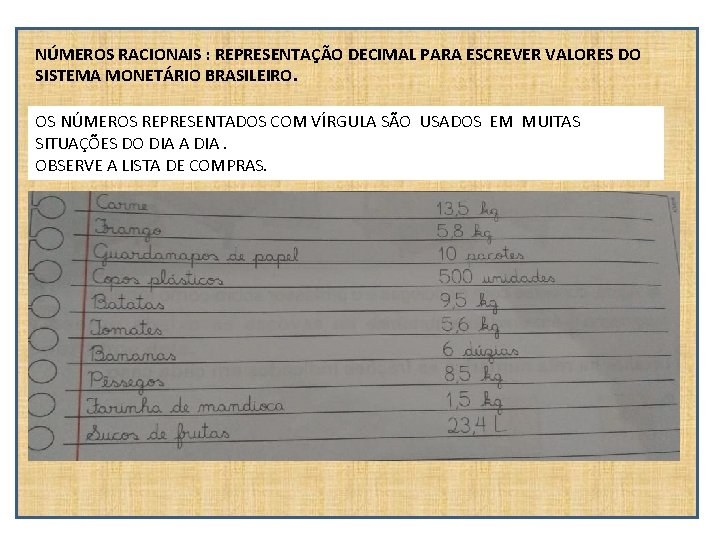 NÚMEROS RACIONAIS : REPRESENTAÇÃO DECIMAL PARA ESCREVER VALORES DO
SISTEMA MONETÁRIO BRASILEIRO.
OS NÚMEROS REPRESENTADOS COM VÍRGULA SÃO USADOS EM MUITAS
SITUAÇÕES DO DIA A DIA .
OBSERVE A LISTA DE COMPRAS.
Carne 13,5 kg
Frango 5,8 kg
Guardanapos de papel 10 pacotes
Copos plásticos 500 unidades
Batatas 9,5 kg
Tomates 5,6 kg
Bananas 6 dúzias
Pêssegos 8,5 kg
Farinha de mandioca 1,5 kg
Sucos de frutas 23,4 L